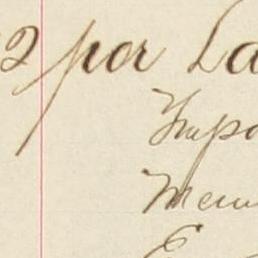 2 por La
Impo
Men